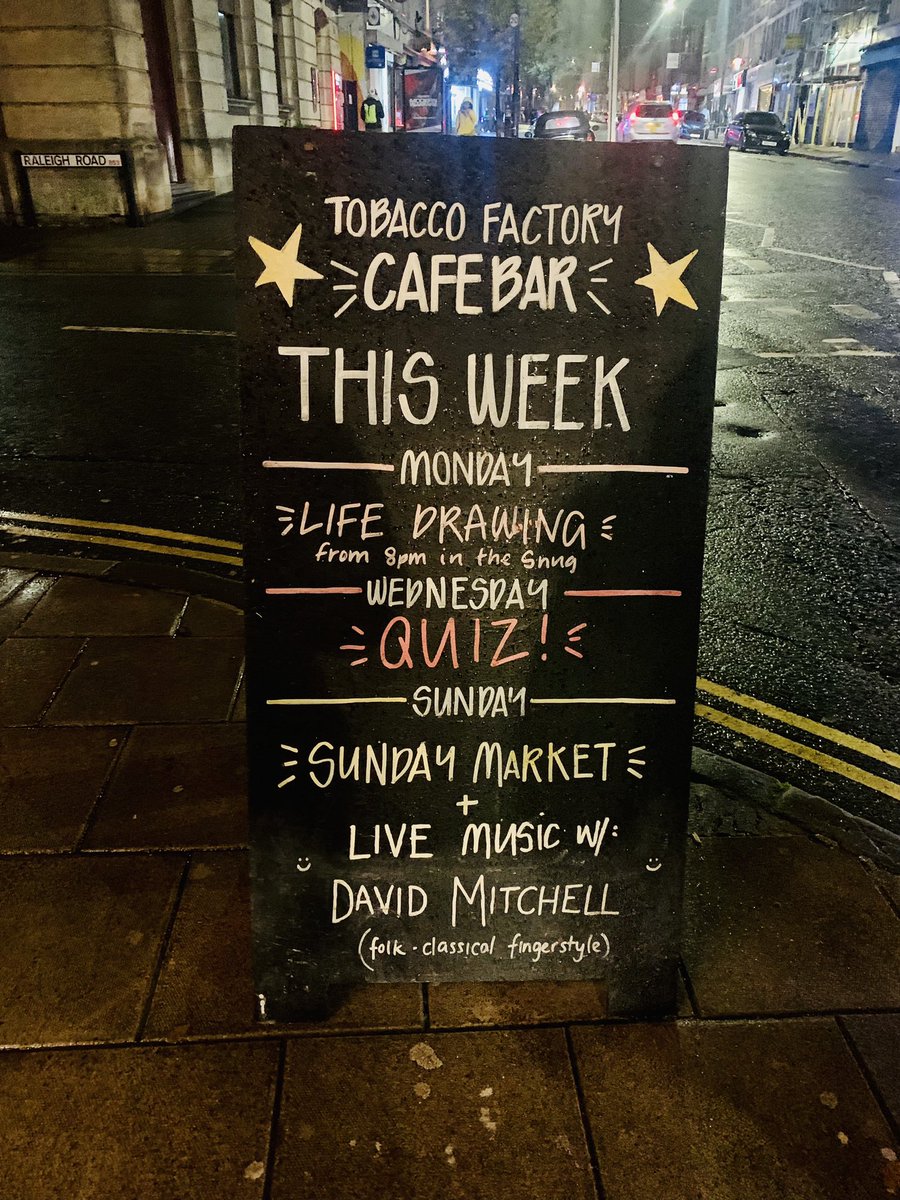 RALEIGH ROAD BS3
TOBACCO FACTORY
CAFE BAR
THIS WEEK
MONDAY
LIFE DRAWING
from 8pm in the Snug
WEDNESDAY
QUIZ!
SUNDAY
SUNDAY MARKET
+
LIVE MUSIC W/:
DAVID MITCHELL
(folk - classical fingerstyle)